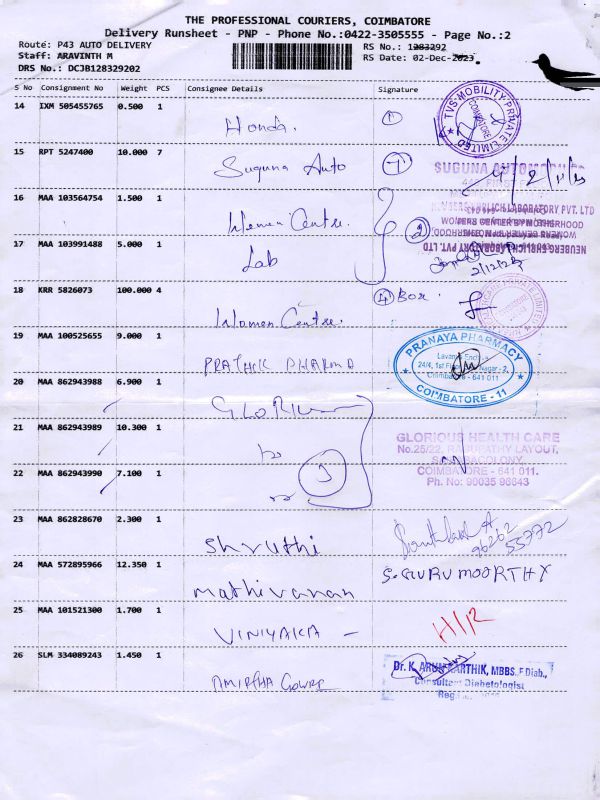 THE PROFESSIONAL COURIERS, COIMBATORE
Delivery Runsheet - PNP - Phone No.:0422-3505555 - Page No.:2
Route: P43 AUTO DELIVERY
RS No.: 1283292
Staff: ARAVINTH M
RS Date: 02-Dec-2023
DRS No.: DCJB128329202
S No Consignment No Weight PCS Consignee Details Signature
14 IXM 505455765 0.500 1
Honda. 1
TVS MOBILITY PRIVATE LIMITED
COIMBATORE
15 RPT 5247400 10.000 7
Suguna Auto 7
SUGUNA
16 MAA 103564754 1.500 1
Women Centre.
17 MAA 103991488 5.000 1
Lab
2
NEUBERG EHRLICH LABORATORY PVT. LTD
WOMENS CENTER BY MOTHERHOOD
2/12/23
18 KRR 5826073 100.000 4
Women Centre.
4 Box
19 MAA 100525655 9.000 1
PRATHIK PHARMA
PRANAYA PHARMACY
24/4, 1st
Nagar - 2,
Coimbatore - 641 011
COIMBATORE - 11
20 MAA 862943988 6.900 1
21 MAA 862943989 10.300 1
3
GLORIOUS HEALTH CARE
No.25/22, RAGUPATHY LAYOUT,
COIMBATORE - 641 011.
Ph. No: 90035 96643
22 MAA 862943990 7.100 1
23 MAA 862828670 2.300 1
Shruthi
96262
55772
24 MAA 572895966 12.350 1
Mathivanan
S. GURUMOORTHY
25 MAA 101521300 1.700 1
VINIYAKA -
26 SLM 334089243 1.450 1
AMIRTHA GOWRI
Dr. K. ARUN KARTHIK, MBBS.,F.Diab.,
Consultant Diabetologist